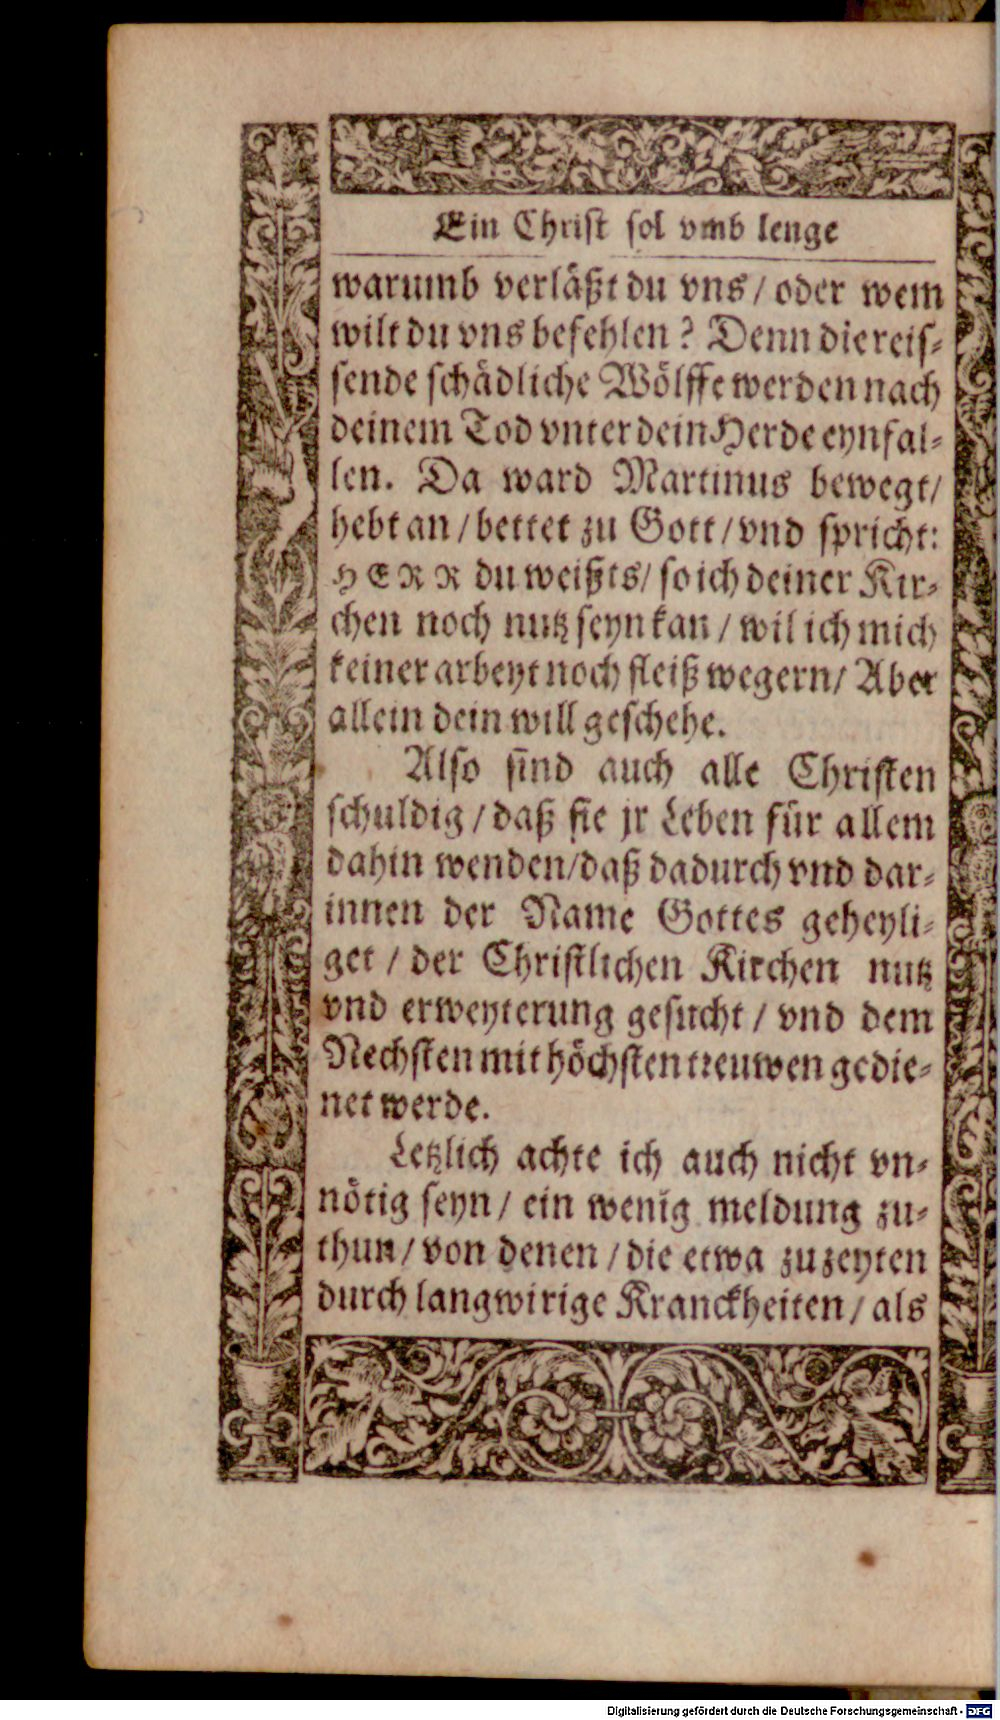 Ein Christ sol vmb lenge
warumb verläßt du vns / oder wem
wilt du vns befehlen ? Denn die reis-
sende schädliche Wölffe werden nach
deinem Tod vnter dein Herde eynfal-
len. Da ward Martinus bewegt /
hebt an / bettet zu Gott / vnd spricht:
HERR du weißts / so ich deiner Kir-
chen noch nutz seyn kan / wil ich mich
keiner arbeyt noch fleiß wegern / Aber
allein dein will geschehe.
Also sind auch alle Christen
schuldig / daß sie jr Leben für allem
dahin wenden / daß dadurch vnd dar-
innen der Name Gottes geheyli-
get / der Christlichen Kirchen nutz
vnd erweyterung gesucht / vnd dem
Nechsten mit höchsten treuwen gedie-
net werde.
Letzlich achte ich auch nicht vn-
nötig seyn / ein wenig meldung zu-
thun / von denen / die etwa zuzeyten
durch langwirige Kranckheiten / als
Digitalisierung gefördert durch die Deutsche Forschungsgemeinschaft - DFG